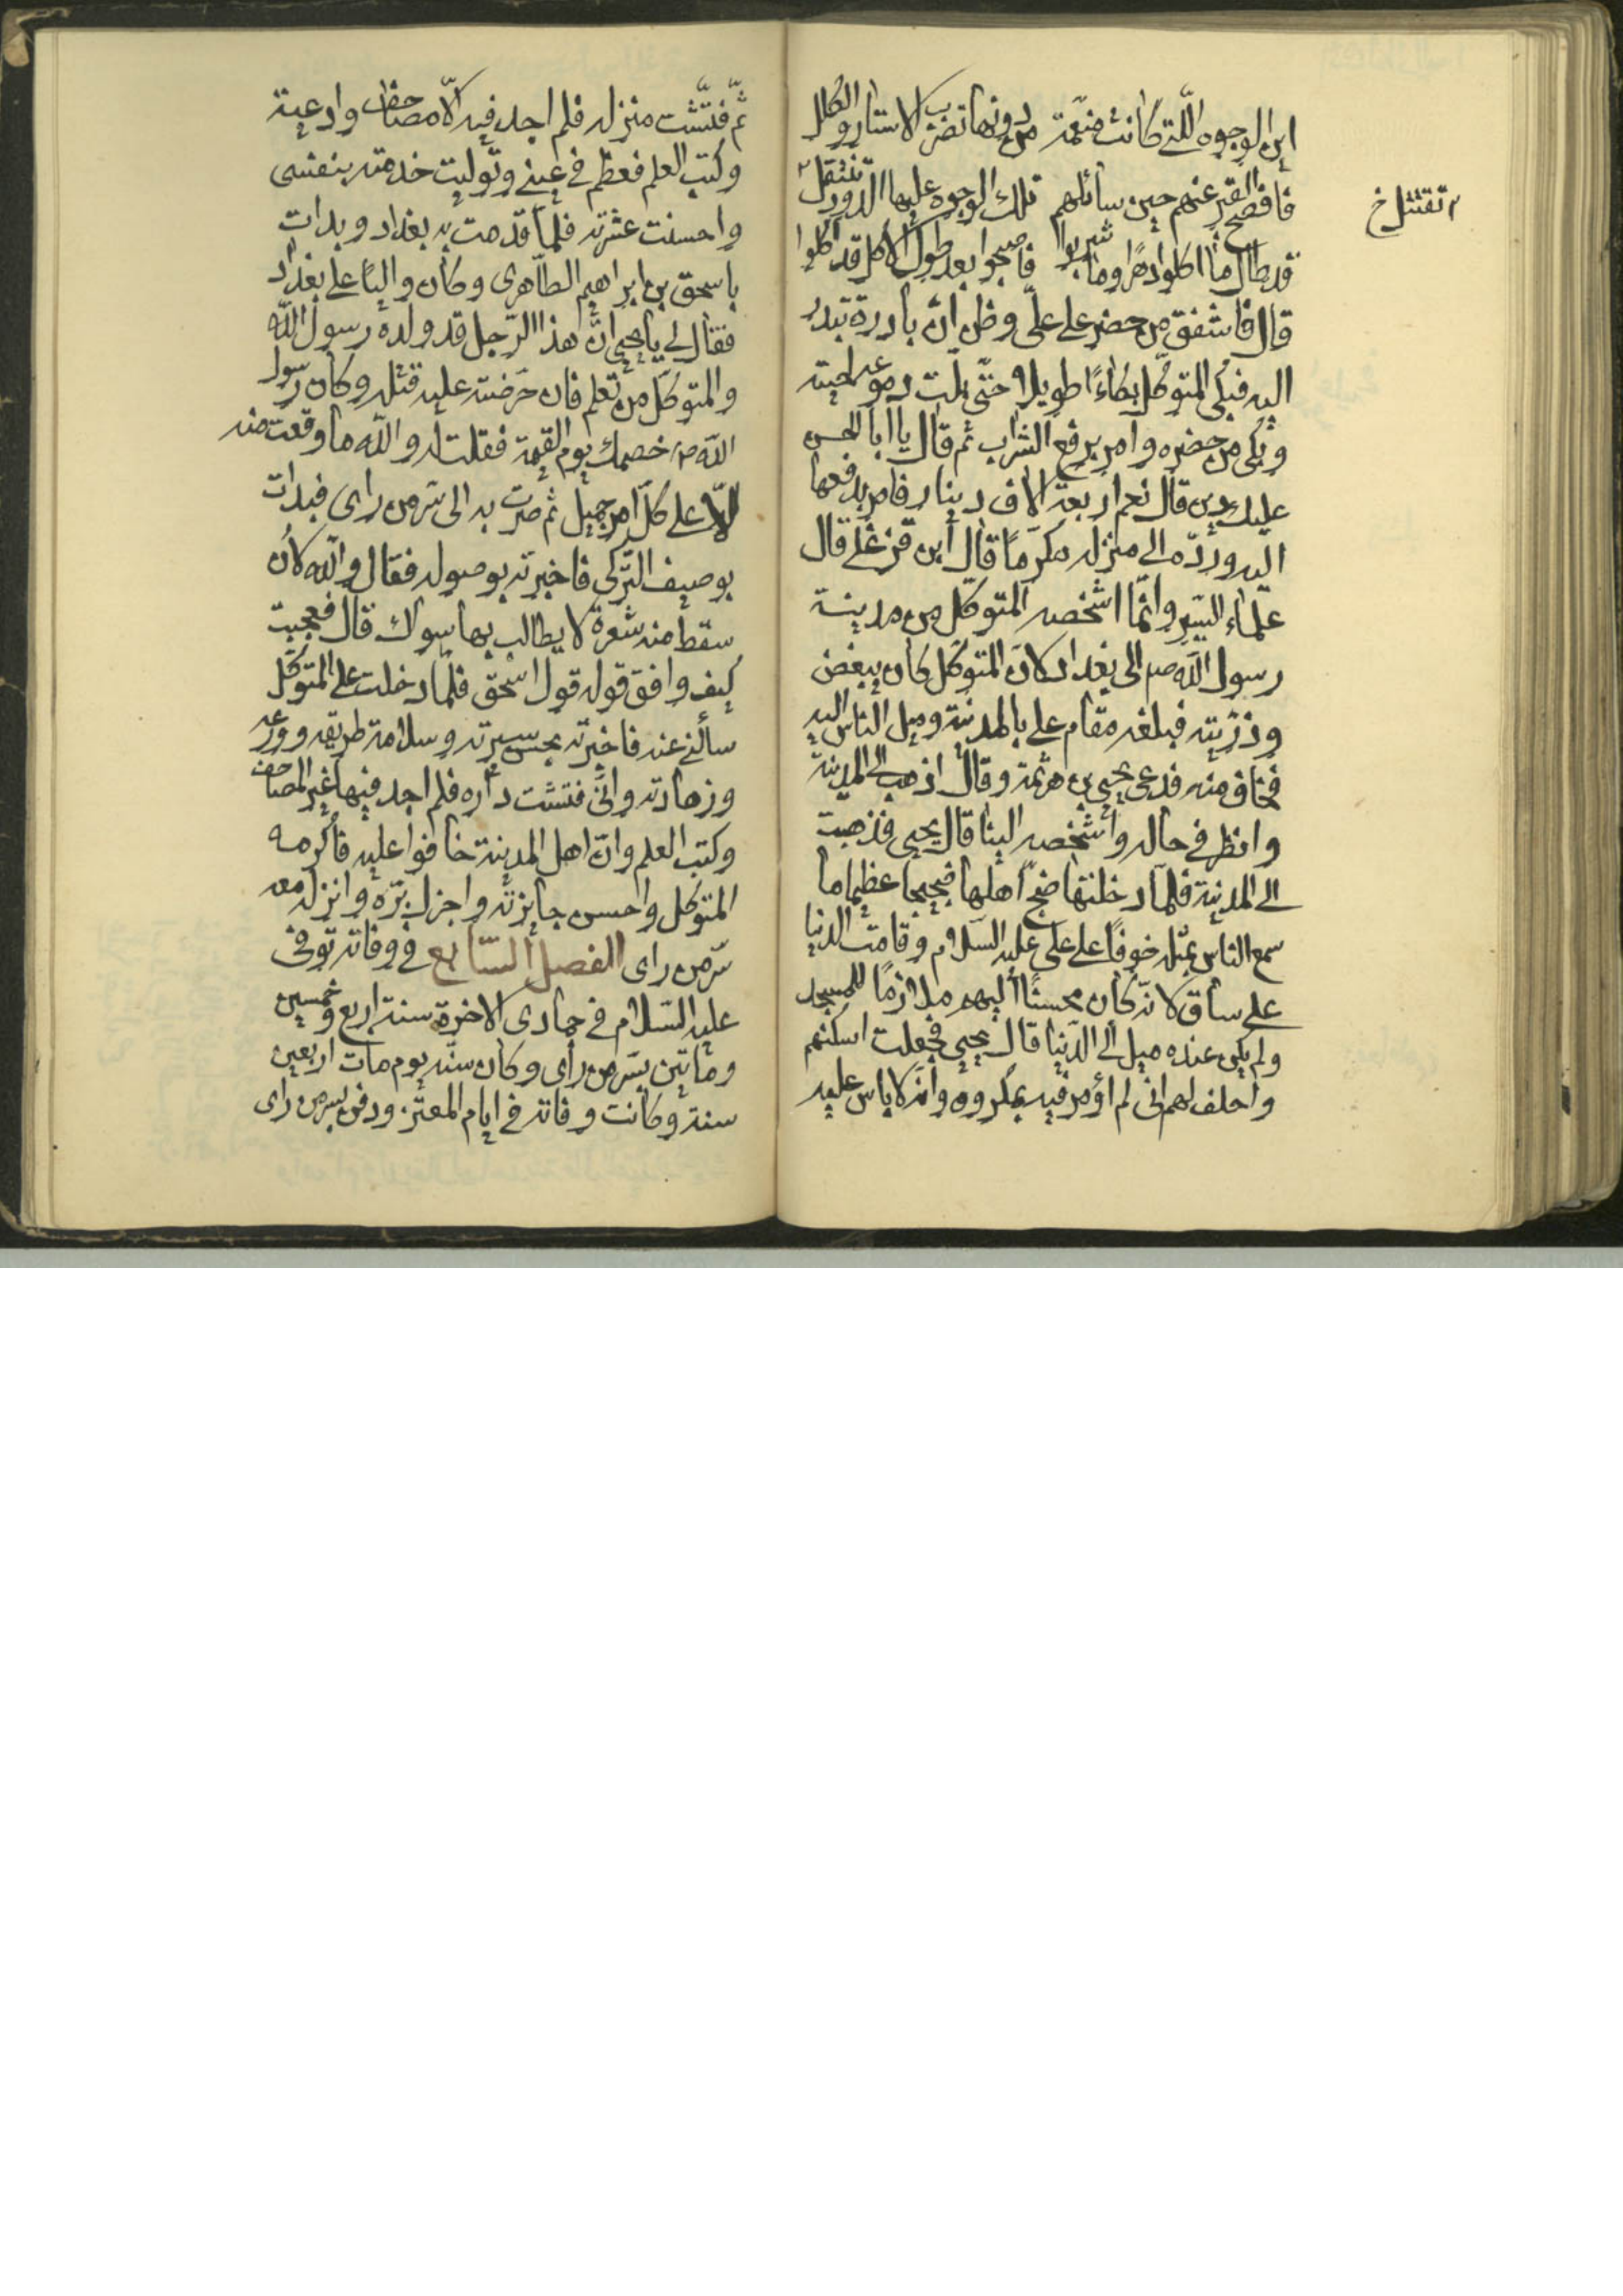 اين الوجوه اللّتى كانت منعّمة من دونها تضرب الاستار والكلل
فافصح القبر عنهم حين سائلهم تلك الوجوه عليها الدود تنتقل
تقتتل خ
قد طال ما اكلوا دهرًا وما شربوا فاصبحوا بعد طول الاكل قد اكلوا
قال فاشفق من حضر على علىّ وظن انّ بادرة تبدر
اليه فبكى المتوكّل بكاءً طويلا حتّى بلّت دموعه لحيته
وبكى من حضره وامر برفع الشراب ثم قال يا ابا الحسن
عليك دين قال نعم اربعة الاف دينار فامر بدفعها
اليه وردّه الى منزله مكرّمًا قال ابن قزغلى قال
علماء السير وانّما اشخصه المتوكّل من مدينة
رسول الله صم الى بغداد لانّ المتوكل كان يبغض
وذرّيته فبلغه مقام على بالمدينة وميل الناس اليه
فخاف منه فدعى يحيى بن هرثمة وقال اذهب الى المدينة
وانظر فى حاله واشخصه الينا قال يحيى فذهبت
الى المدينة فلمّا دخلتها ضجّ اهلها ضجيجا عظيما ما
سمع الناس بمثله خوفًا على على عليه السّلام وقامت الدنيا
على ساق لانّه كان محسنًا اليهم ملازمًا للمسجد
ولم يكن عنده ميل الى الدّنيا قال يحيى فجعلت اسكنهم
واحلف لهم انى لم اؤمر فيه بمكروه وانّه لا باس عليه
ثمّ فتّشت منزله فلم اجد فيه الّا مصاحف وادعية
وكتب العلم فعظم فى عينى وتولّيت خدمته بنفسى
واحسنت عشرته فلمّا قدمت به بغداد وبدات
باسحق بن ابراهيم الطّاهرى وكان واليًا على بغداد
فقال لى يا يحيى انّ هذا الرّجل قد ولده رسول اللّه
والمتوكّل من تعلم فان حرّضته عليه قتله وكان رسول
اللّه ص خصمك يوم القيمة فقلت له واللّه ما وقعت منه
الّا على كلّ امر جميل ثم صرت به الى سّر من راى فبدات
بوصيف التّركى فاخبرته بوصوله فقال واللّه لان
سقط منه شعرة لا يطالب بها سواك قال فعجبت
كيف وافق قوله قول اسحق فلمّا دخلت على المتوكّل
سألنى عنه فاخبرته بحسن سيرته وسلامة طريقه وورعه
وزهادته وانّى فتشت داره فلم اجد فيها غير المصاحف
وكتب العلم وانّ اهل المدينة خافوا عليه فاكرمه
المتوكّل واحسن جايزته واجزل برّه وانزله معه
سّر من راى الفصل السّابع فى وفاته توفى
عليه السّلام فى جمادى الاخرة سنة اربع وخمسين
وماتين بسّر من راى وكان سنّه يوم مات اربعين
سنة وكانت وفاته فى ايام المعتّز ودفن بسر من راى